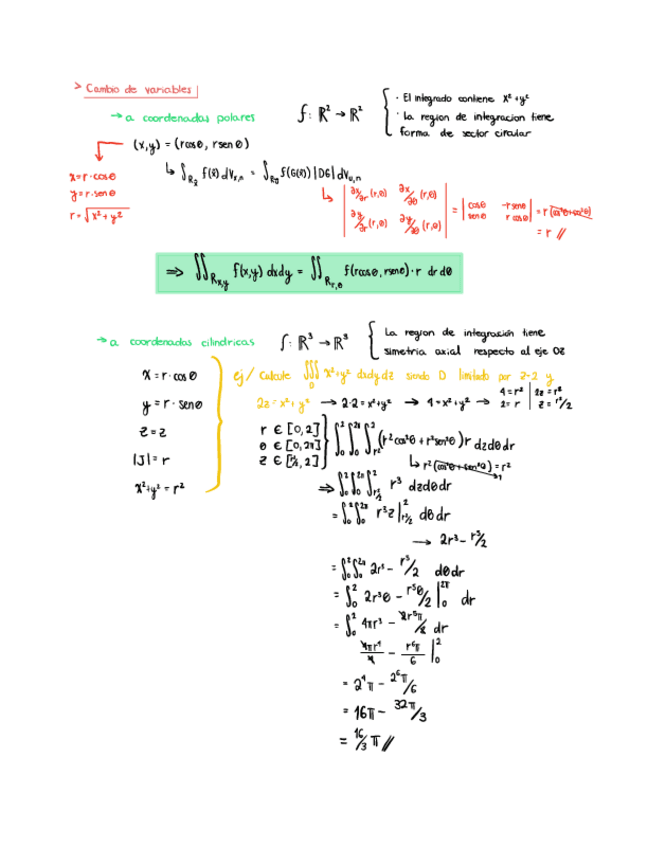 > Cambio de variables
→ a coordenadas polares
f: ℝ² → ℝ²
· El integrado contiene x²+y²
· la region de integracion tiene forma de sector circular
(x,y) = (rcosθ, rsenθ)
x=r·cosθ
y=r·senθ
r=√x²+y²
| ∂x/∂r (r,θ) ∂x/∂θ (r,θ) |
| ∂y/∂r (r,θ) ∂y/∂θ (r,θ) |
= | cosθ -rsenθ |
| senθ rcosθ |
= r(cos²θ+sen²θ)
= r //
⇒ ∬Rx,y f(x,y) dxdy = ∬Rr,θ f(rcosθ, rsenθ)·r dr dθ
→ a coordenadas cilindricas
f: ℝ³ → ℝ³
La region de integración tiene
simetria axial respecto al eje OZ
x = r·cosθ
y = r·senθ
z=z
|J|=r
x²+y² = r²
ej/ Calcule ∭D x²+y² dxdydz siendo D limitado por z=2 y
2z = x²+y² → 2·2=x²+y² → 4=x²+y² → 4=r² | 2z=r²
2=r | z=r²/2
r ∈ [0,2]
θ ∈ [0,2π]
z ∈ [r²/2,2]
(r²cos²θ+r²sen²θ)r dzdθdr
↳ r²(cos²θ+sen²θ)=r²
⇒ ∫₀²∫₀²π∫r²/2² r³ dzdθdr
= ∫₀²∫₀²π r³z |r²/2² dθdr
→ 2r³ - r⁵/2
= ∫₀²∫₀²π 2r³ - r⁵/2 dθdr
= ∫₀² 2r³θ - r⁵θ/2 |₀²π dr
= ∫₀² 4πr³ - 2r⁵π/2 dr
4πr⁴/4 - r⁶π/6 |₀²
= 2⁴π - 2⁶π/6
= 16π - 32π/3
= 16/3 π //